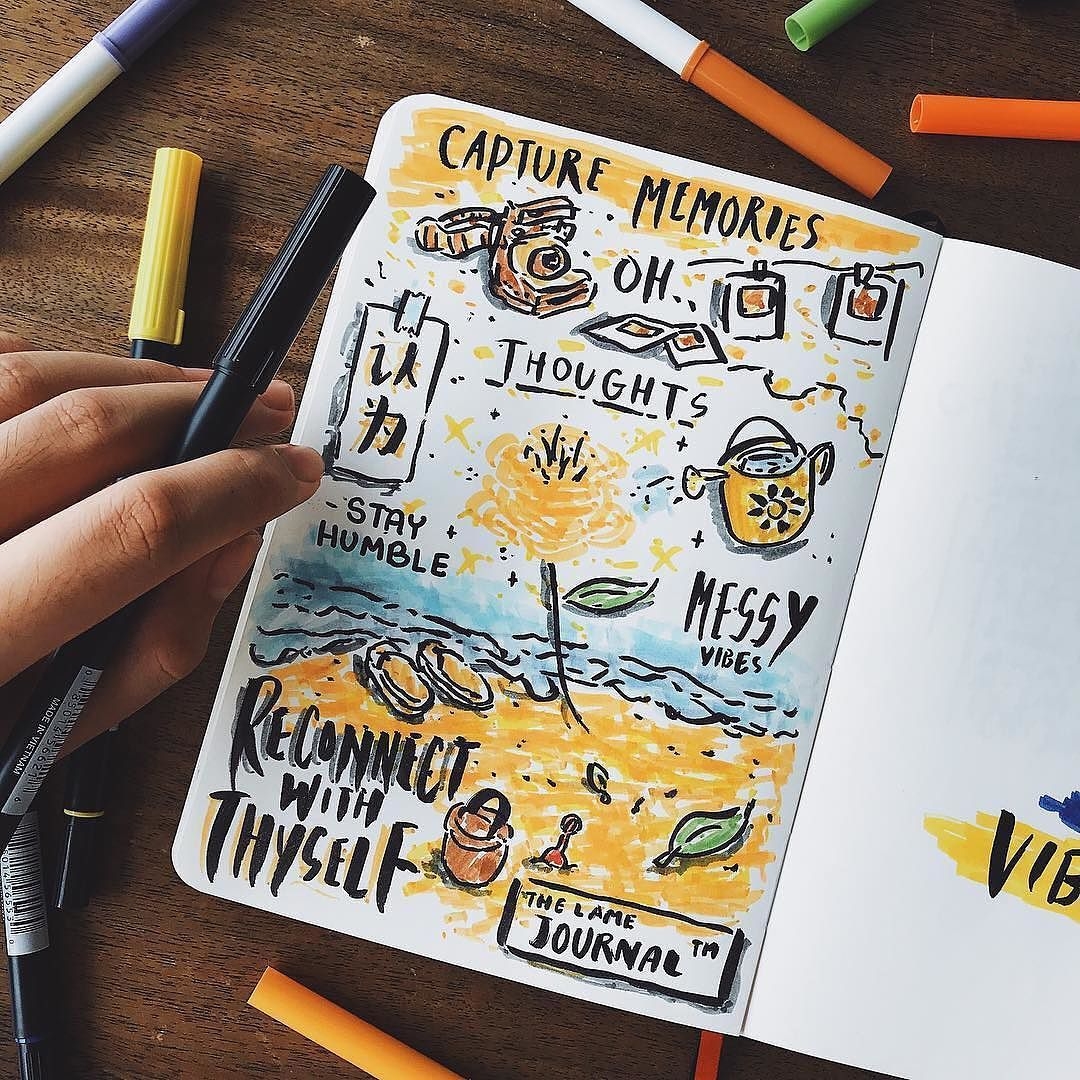 CAPTURE MEMORIES
OH..
THOUGHTS
以
力
-STAY
HUMBLE
MESSY
VIBES
RECONNECT
WITH
THYSELF
THE LAME
JOURNAL™
VIB
MADE IN VIETNAM